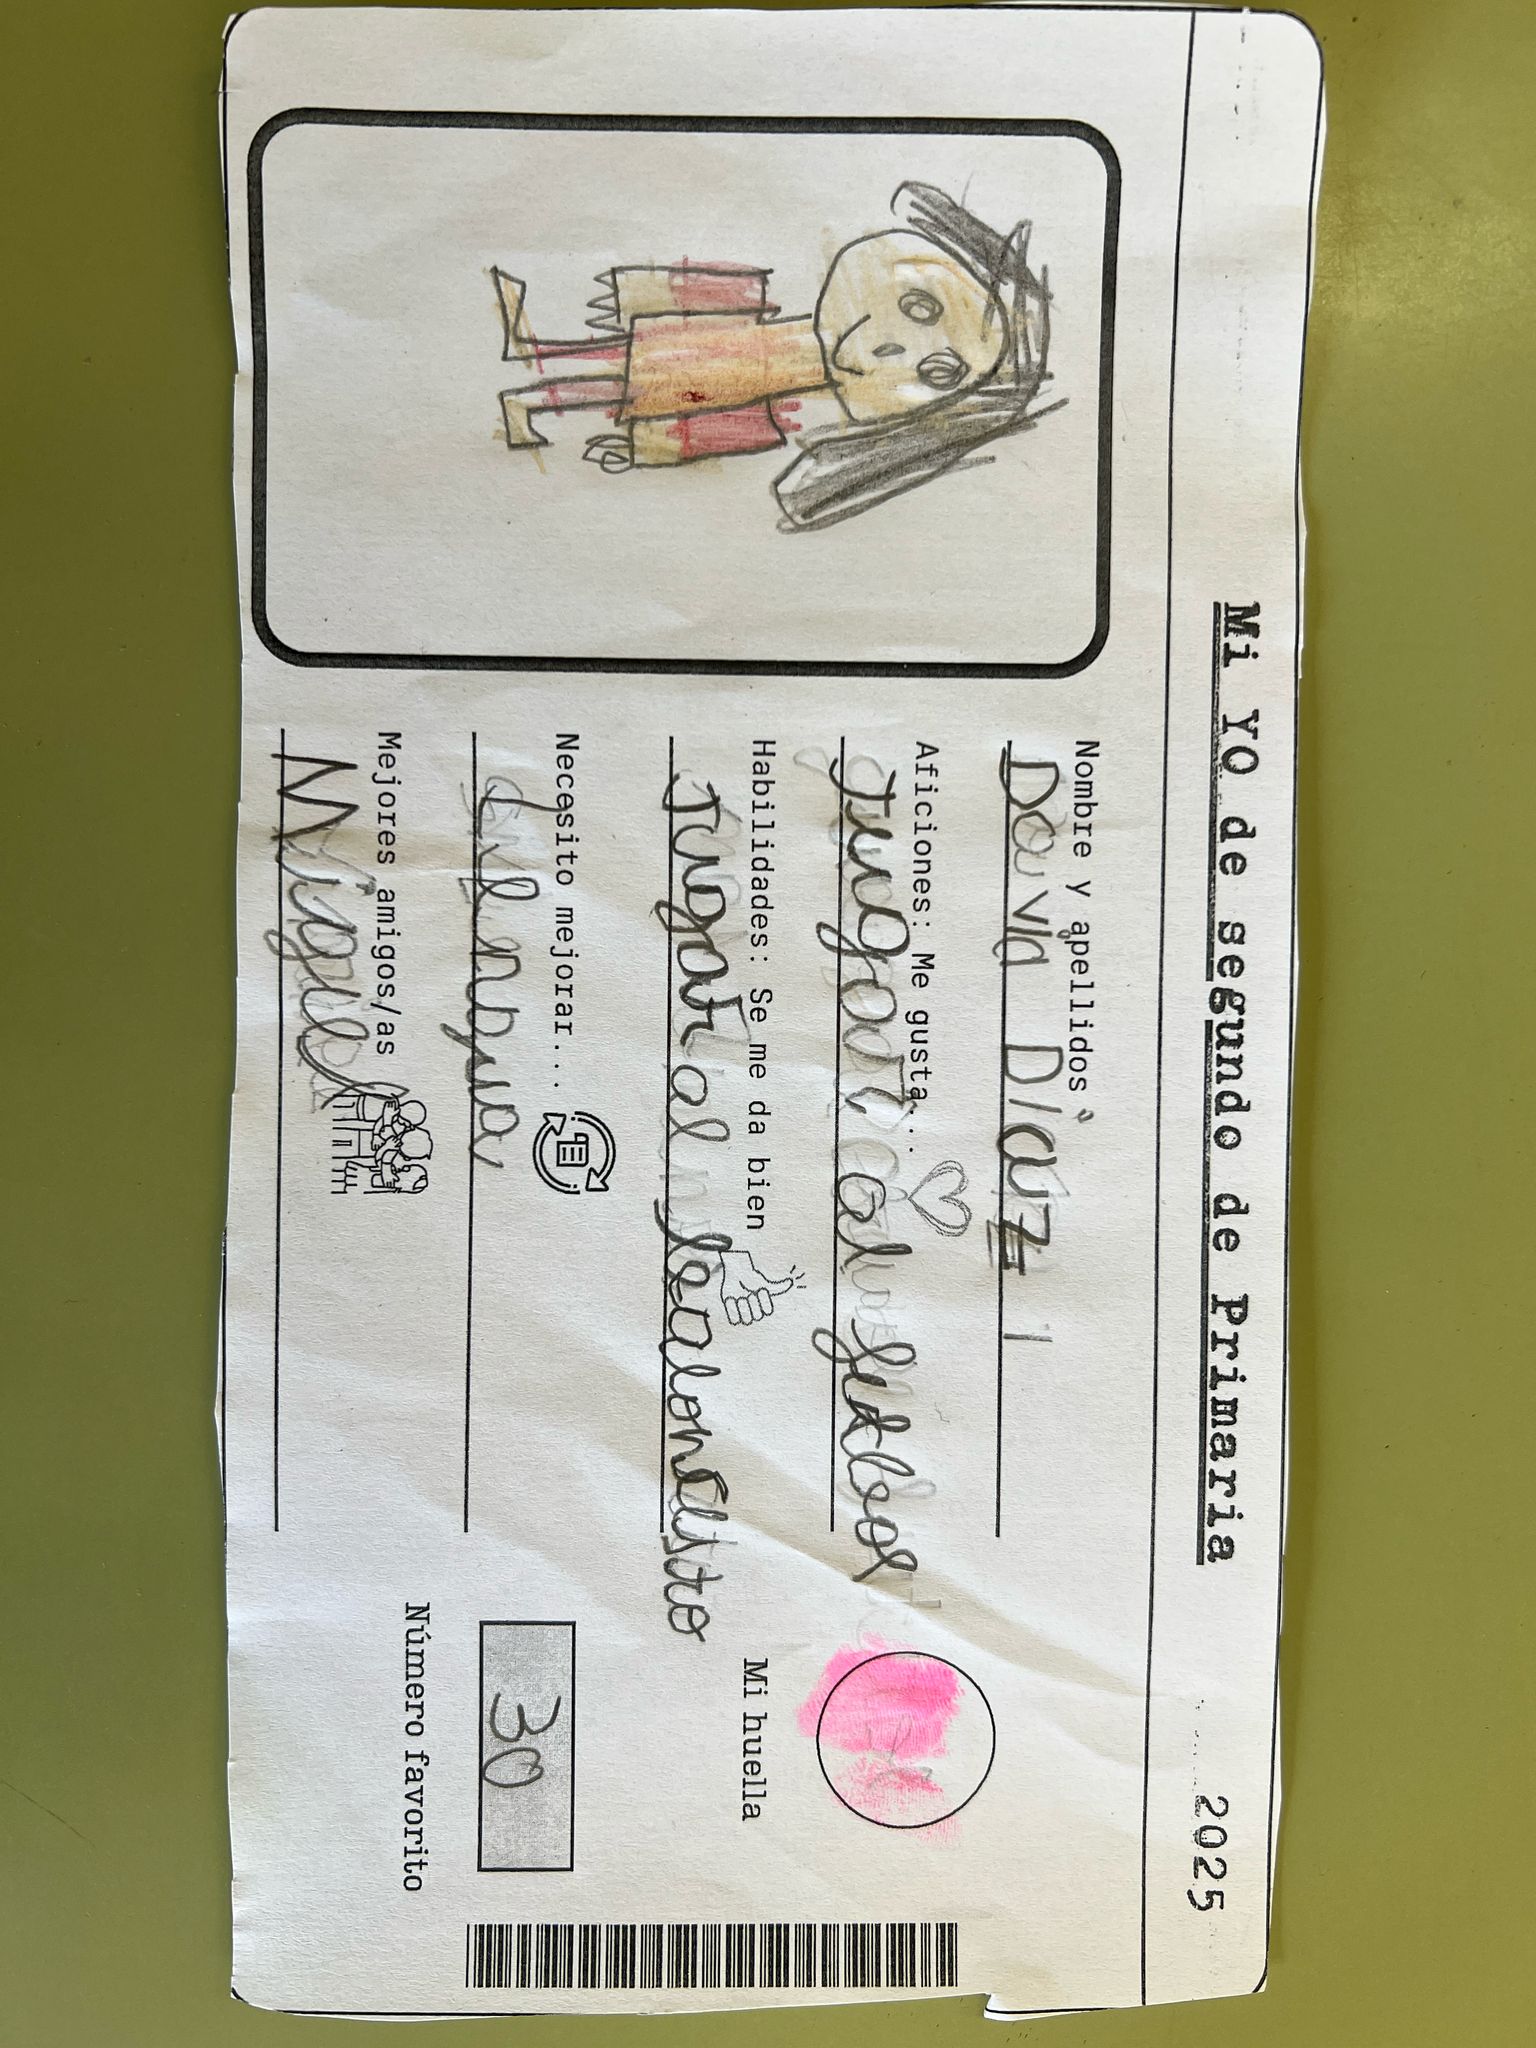 Mi YO de segundo de Primaria
2025
Nombre y apellidos
David Diaz
Aficiones: Me gusta...
Jugar al futbol
Habilidades: Se me da bien
Jugar al baloncesto
Necesito mejorar...
Lengua
Mejores amigos/as
Miguel
Mi huella
30
Número favorito